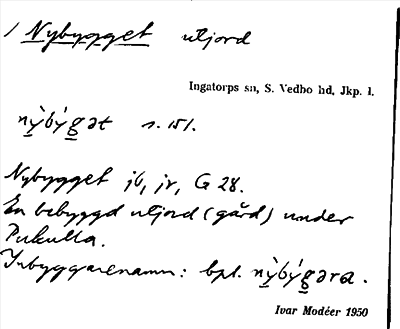 1 Nybygget utjord
Ingatorps sn, S. Vedbo hd, Jkp. l.
nỳbýgət s. 151.
Nybygget jb, jr, G 28.
En bebyggd utjord (gård) under
Pukulla.
Inbyggarenamn: bpl. nỳbýgəra.
Ivar Modéer 1950